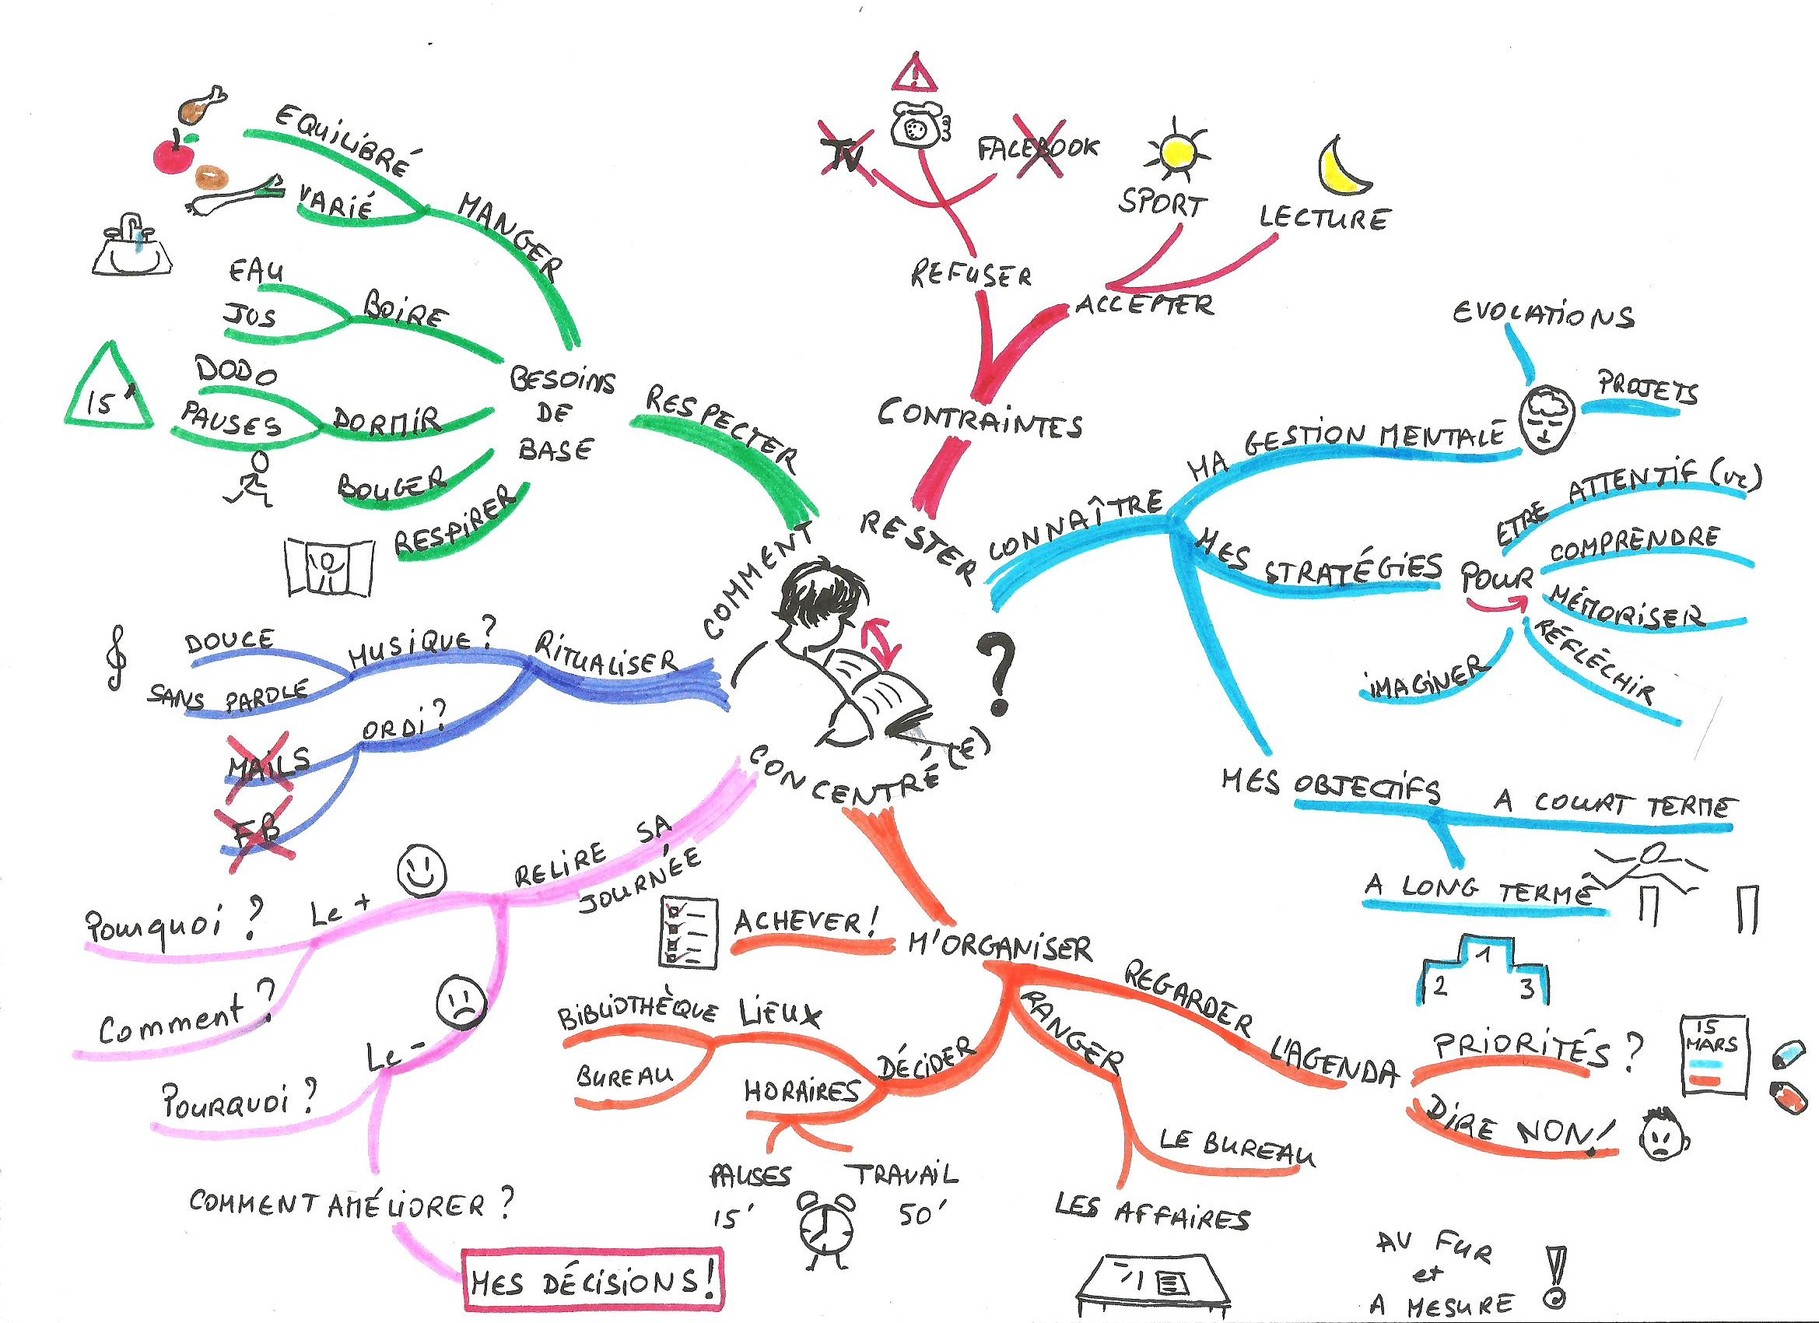 COMMENT
RESTER
CONCENTRÉ
(E)
?
RESPECTER
BESOINS
DE
BASE
MANGER
EQUILIBRÉ
VARIÉ
BOIRE
EAU
JUS
DORMIR
DODO
PAUSES
15'
BOUGER
RESPIRER
CONTRAINTES
REFUSER
TV
FACEBOOK
ACCEPTER
SPORT
LECTURE
CONNAÎTRE
MA GESTION MENTALE
EVOCATIONS
PROJETS
MES STRATÉGIES
POUR
ETRE ATTENTIF (VE)
COMPRENDRE
MÉMORISER
RÉFLÉCHIR
IMAGINER
MES OBJECTIFS
A COURT TERME
A LONG TERME
1
2
3
M'ORGANISER
REGARDER L'AGENDA
PRIORITÉS ?
15
MARS
DIRE NON!
RANGER
LE BUREAU
LES AFFAIRES
AU FUR
et
A MESURE
!
DÉCIDER
LIEUX
BIBLIOTHÈQUE
BUREAU
HORAIRES
PAUSES
15'
TRAVAIL
50'
ACHEVER!
RELIRE SA
JOURNÉE
Le +
Pourquoi ?
Comment ?
Le -
POURQUOI ?
COMMENT AMÉLIORER ?
MES DÉCISIONS!
RITUALISER
MUSIQUE ?
DOUCE
SANS PAROLE
ORDI ?
MAILS
FB